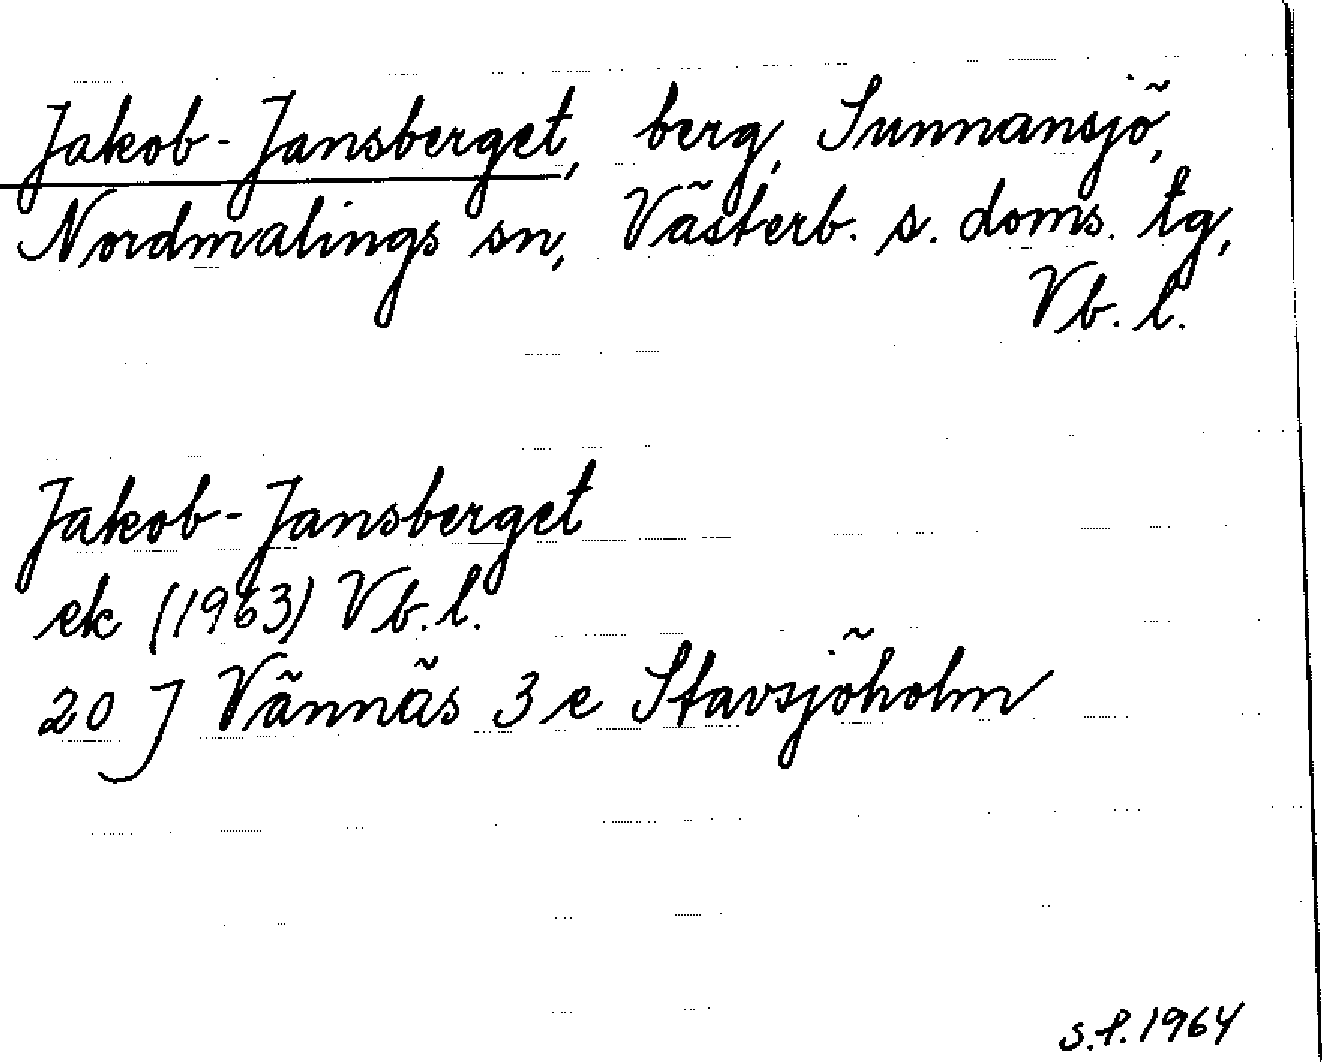 Jakob-Jansberget, berg, Sunnansjö,
Nordmalings sn, Västerb. s. doms. tg,
Vb. l.
Jakob-Jansberget
ek (1963) Vb. l.
20 J Vännäs 3 e Stavsjöholm
S.f. 1964